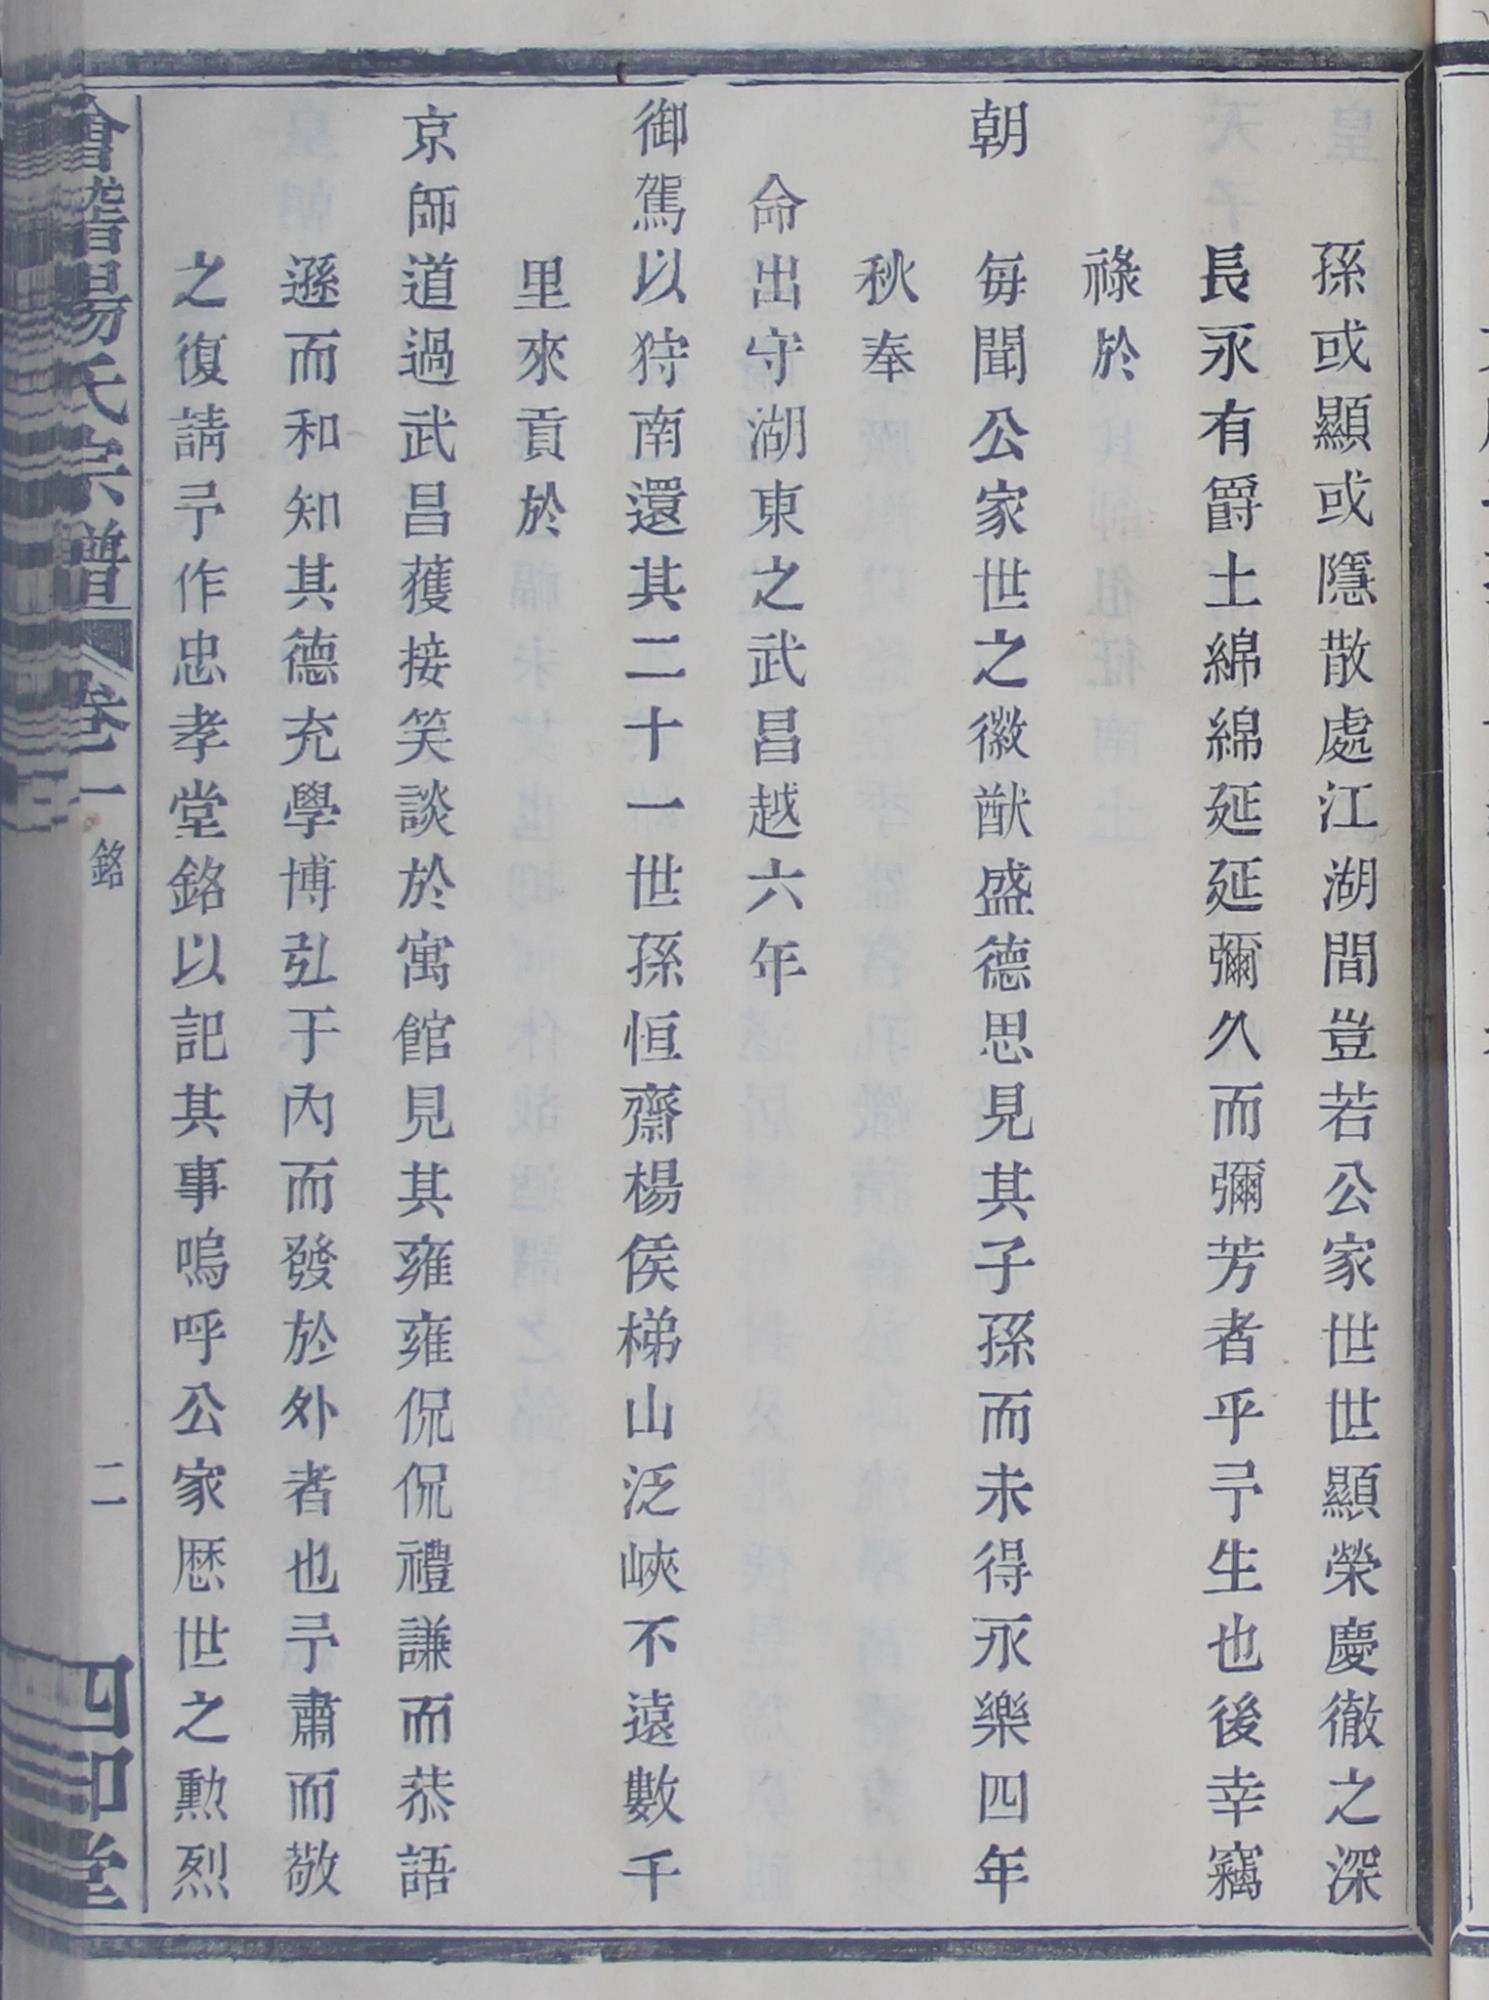 孫或顯或隱散處江湖間豈若公家世世顯榮慶徹之深
長永有爵土綿綿延延彌久而彌芳者乎予生也後幸竊
祿於
朝每聞公家世之徽猷盛德思見其子孫而未得永樂四年
秋奉
命出守湖東之武昌越六年
御駕以狩南還其二十一世孫恒齋楊侯梯山泛峽不遠數千
里來貢於
京師道過武昌獲接笑談於寓館見其雍雍侃侃禮謙而恭語
遜而和知其德充學博弘于內而發於外者也予肅而敬
之復請予作忠孝堂銘以記其事嗚呼公家歷世之勳烈
會稽楊氏宗譜 卷一 銘 二 四知堂